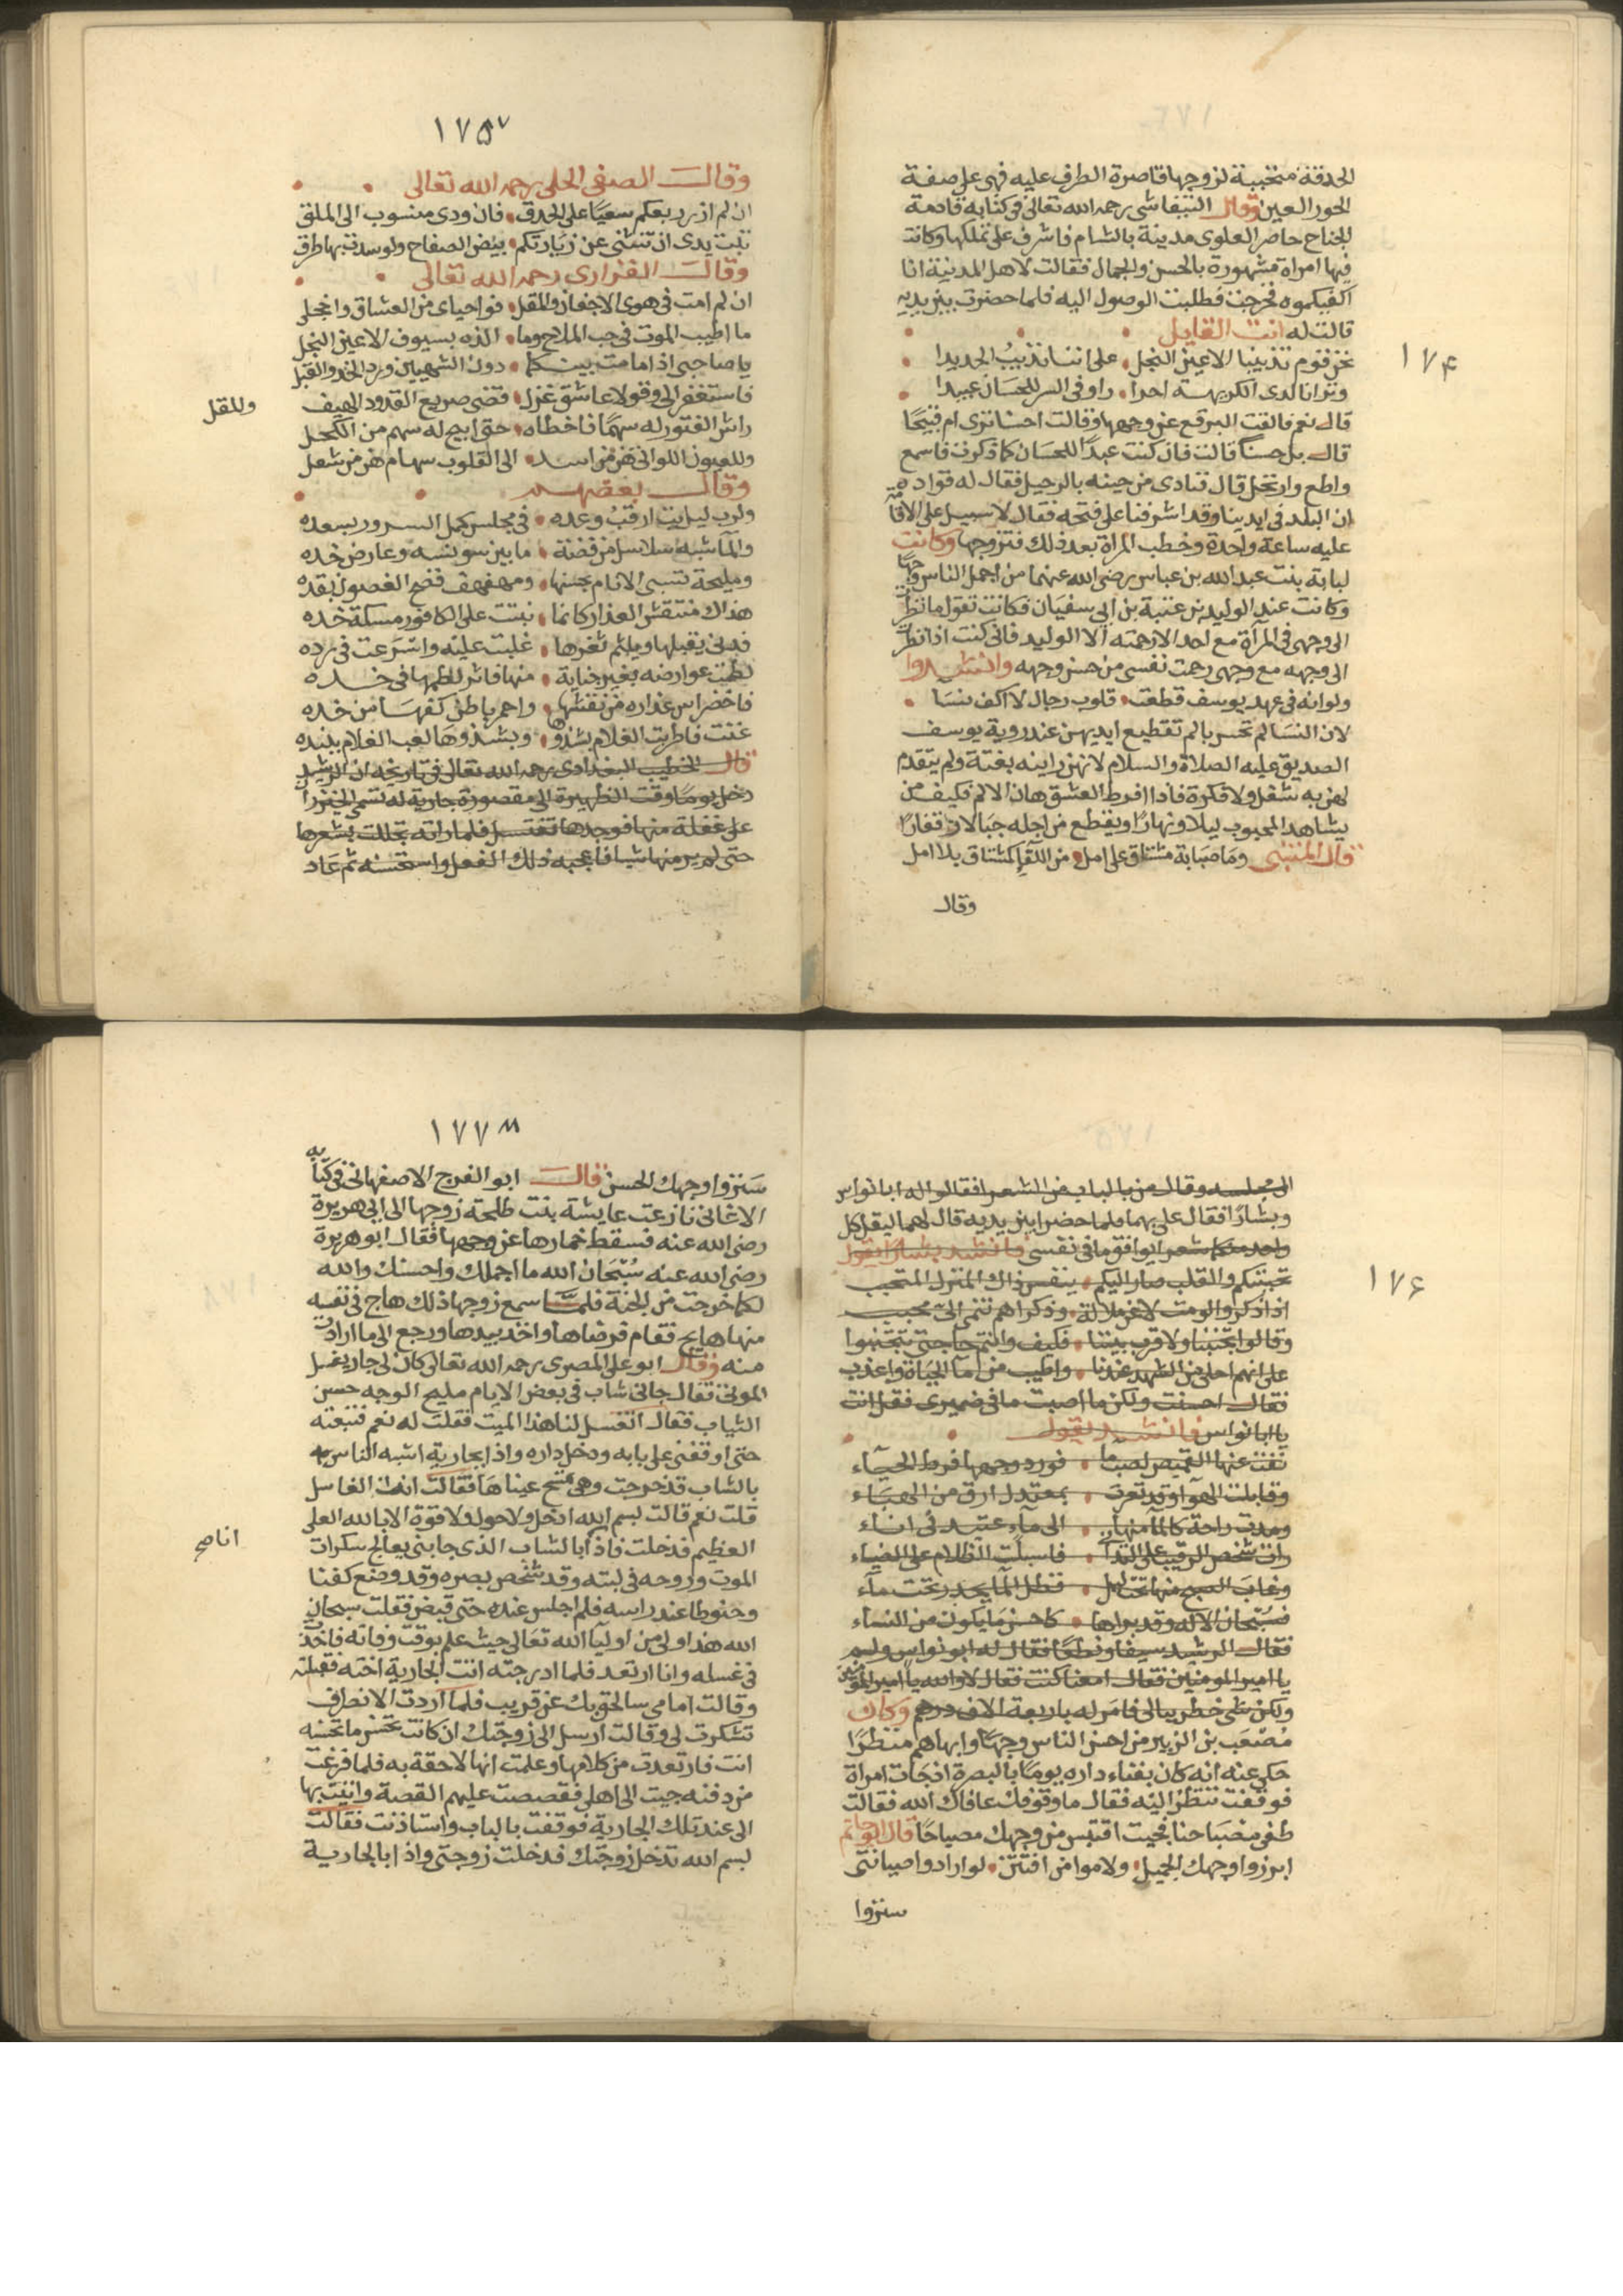 ١٧٤
الحدقة متحببة لزوجها قاصرة الطرف عليه فهى على صفة
الحور العين وقال التيفاشى رحمه الله تعالى فى كتابه قادمة
الجناح حاصر العلوى مدينة بالشام فاشرف على تملكها وكانت
فيها امراة مشهورة بالحسن والجمال فقالت لاهل المدينة انا
اكفيكموه فخرجت فطلبت الوصول اليه فلما حضرت بين يديه
قالت له انت القايل
نحن قوم تذيبنا الاعين النجل على اننا نذيب الحديدا
وترانا لدى الكريهة احرا را وفى السر للحسان عبيدا
قال نعم فالقت البرقع عن وجهها وقالت احسنا ترى ام قبيحا
قال بل حسنا قالت فان كنت عبدا للحسان كما ذكرت فاسمع
واطع وارتحل قال فنادى من حينه بالرحيل فقال له قواده
ان البلد فى ايدينا وقد اشرفنا على فتحه فقال لا سبيل على الاقامة
عليه ساعة واحدة وخطب المراة بعد ذلك فتزوجها وكانت
لبابة بنت عبد الله بن عباس رضى الله عنهما من اجمل الناس وجها
وكانت عند الوليد بن عتبة بن ابى سفيان فكانت تقول ما نظرت
الى وجهى فى المرآة مع احد الا رحمته الا الوليد فانى كنت اذا نظرت
الى وجهه مع وجهى رحمت نفسى من حسن وجهه وانشدوا
ولو انه فى عهد يوسف قطعت قلوب رجال لا اكف نسا
لان النسا لم تحس بالم تقطيع ايديهن عند روية يوسف
الصديق عليه الصلاة والسلام لانهن راينه بغتة ولم يتقدم
لهن به شغل ولا فكرة فاذا افرط العشق هان الالم فكيف من
يشاهد المحبوب ليلا ونهارا ويقطع من اجله جبالا وقفارا
قال المتنبى وما صبابة مشتاق على امل من اللقاء كمشتاق بلا امل
وقال
١٧٥
وقال الصفى الحلى رحمه الله تعالى
ان لم ازر ربعكم سعيا على الحدق فان ودى منسوب الى الملق
تبت يدى ان تنثنى عن زيارتكم بيض الصفاح ولو سدت بها طرق
وقال الفزارى رحمه الله تعالى
ان لم امت فى هوى الاجفان والمقل فواحياى من العشاق واخجلى
ما اطيب الموت فى حب الملاح وما الذه بسيوف الاعين النجل
يا صاحبى اذا ما مت بينكما دون الشهيين ورد الخد والقبل
فاستغفرا لى وقولا عاشق غزل قضى صريع القدود الهيف
وللمقل
راش الفتور له سهما فاخطاه حتى ابيح له سهم من الكحل
وللعيون اللواتى هن من اسد الى القلوب سهام هن من ثعل
وقال بعضهم
ولرب ليل بت ارقب وعده فى مجلس كمل السرور بسعده
والمآ شبه سلاسل من فضة ما بين سوسنه وعارض خده
ومليحة تسبى الانام بحسنها ومهفهف فضح الغصون بقده
هذاك منتقش العذار كانما نبتت على الكافور مسكة خده
فدنى يقبلها ويلثم ثغرها غلبت عليه واسرعت فى رده
لطمت عوارضه بغير جناية منها فاثر لطمها فى خده
فاخضر اس عذاره من نقشها واحمر باطن كفها من خده
غنت فاطربت الغلام بشدوها وبشدوها لعب الغلام ببنده
قال الخطيب البغدادى رحمه الله تعالى فى تاريخه ان الرشيد
دخل يوما وقت الظهيرة الى مقصورة جارية له تسمى الخيزران
على غفلة منها فوجدها تغتسل فلما راته تجللت بشعرها
حتى لم ير منها شيا فاعجبه ذلك الفعل واستحسنه ثم عاد
١٧٦
الى مجلسه وقال من بالباب من الشعرا فقالوا له ابا نواس
وبشارا فقال على بهما فلما حضرا بين يديه قال لهما ليقل كل
واحد منكما شعرا يوافق ما فى نفسى فانشد بشارا يقول
تحببتكم والقلب صار اليكم بنفسى ذاك المنزل المتحبب
اذا ذكروا لومت لا عن ملالة وذكراهم تنمى الى محبب
وقالوا تجنبنا ولا قرب بيننا فكيف وانتم حاجتى تتجنبوا
على انهم احلى من الشهد عندنا واطيب من مآ الحياة واعذب
فقال احسنت ولكن ما اصبت ما فى ضميرى فقل انت
يا ابا نواس فانشد يقول
نضت عنها القميص لصب ما فورد وجهها فرط الحيآء
وقابلت الهوآ وقد تعرت بمعتدل ارق من الهبآء
ومدت راحة كالمآ منها الى مآء عتيد فى انآء
رات شخص الرقيب على التدآ فاسبلت الظلام على الضيآء
وغاب الصبح منها تحت ليل فظل المآ يجدر تحت مآء
فسبحان الاله وقد براها كاحسن ما يكون من النسآء
فقال الرشيد سيفا ونطعا فقال له ابو نواس ولم
يا امير المومنين فقال امعنا كنت فقال لا والله يا امير المومنين
ولكن شى خطر ببالى فامر له باربعة الاف درهم وكان
مصعب بن الزبير من احسن الناس وجها وابهاهم منظرا
حكى عنه انه كان بفناء داره يوما بالبصرة اذ جات امراة
فوقفت تنظر اليه فقال ما وقوفك عافاك الله فقالت
طفى مصباحنا فجيت اقتبس من وجهك مصباحا قال ابو حاتم
ابرزوا وجهك الجميل ولاموا من افتتن لو ارادوا صيانتى
ستروا
١٧٧
ستروا وجهك الحسن قال ابو الفرج الاصفهانى فى كتابه
الاغانى نازعت عايشة بنت طلحة زوجها الى ابى هريرة
رضى الله عنه فسقط خمارها عن وجهها فقال ابو هريرة
رضى الله عنه سبحان الله ما اجملك واحسنك والله
لكما خرجت من الجنة فلما سمع زوجها ذلك هاج فى نفسه
منها هايج فقام فرضاها واخذ بيدها ورجع الى ما ارادت
منه وقال ابو على المصرى رحمه الله تعالى كان لى جار يغسل
الموتى فقال جانى شاب فى بعض الايام مليح الوجه حسن
الثياب فقال اتغسل لنا هذا الميت فقلت له نعم فتبعته
حتى اوقفنى على بابه ودخل داره واذا بجارية اشبه الناس
بالشاب قد خرجت وهى تمسح عيناها فقالت انت الغاسل
قلت نعم قالت بسم الله ادخل ولا حول ولا قوة الا بالله العلى
العظيم فدخلت فاذا بالشاب الذى جابنى يعالج سكرات
انا صح
الموت وروحه فى لبته وقد شخص بصره وقد وضع كفنا
وحنوطا عند راسه فلم اجلس عنده حتى قبض فقلت سبحان
الله هذا ولى من اوليآ الله تعالى حيث علم بوقت وفاته فاخذت
فى غسله وانا ارتعد فلما ادرجته اتت الجارية اخته فقبلته
وقالت اما انى سالحق بك عن قريب فلما اردت الانصراف
تشكرت لى وقالت ارسل الى زوجتك ان كانت تحسن ما تحسنه
انت فارتعدت من كلامها وعلمت انها لاحقة به فلما فرغت
من دفنه جيت الى اهلى فقصصت عليهم القصة واتيت بها
الى عند تلك الجارية فوقفت بالباب واستاذنت فقالت
بسم الله تدخل زوجتك فدخلت زوجتى واذا بالجارية